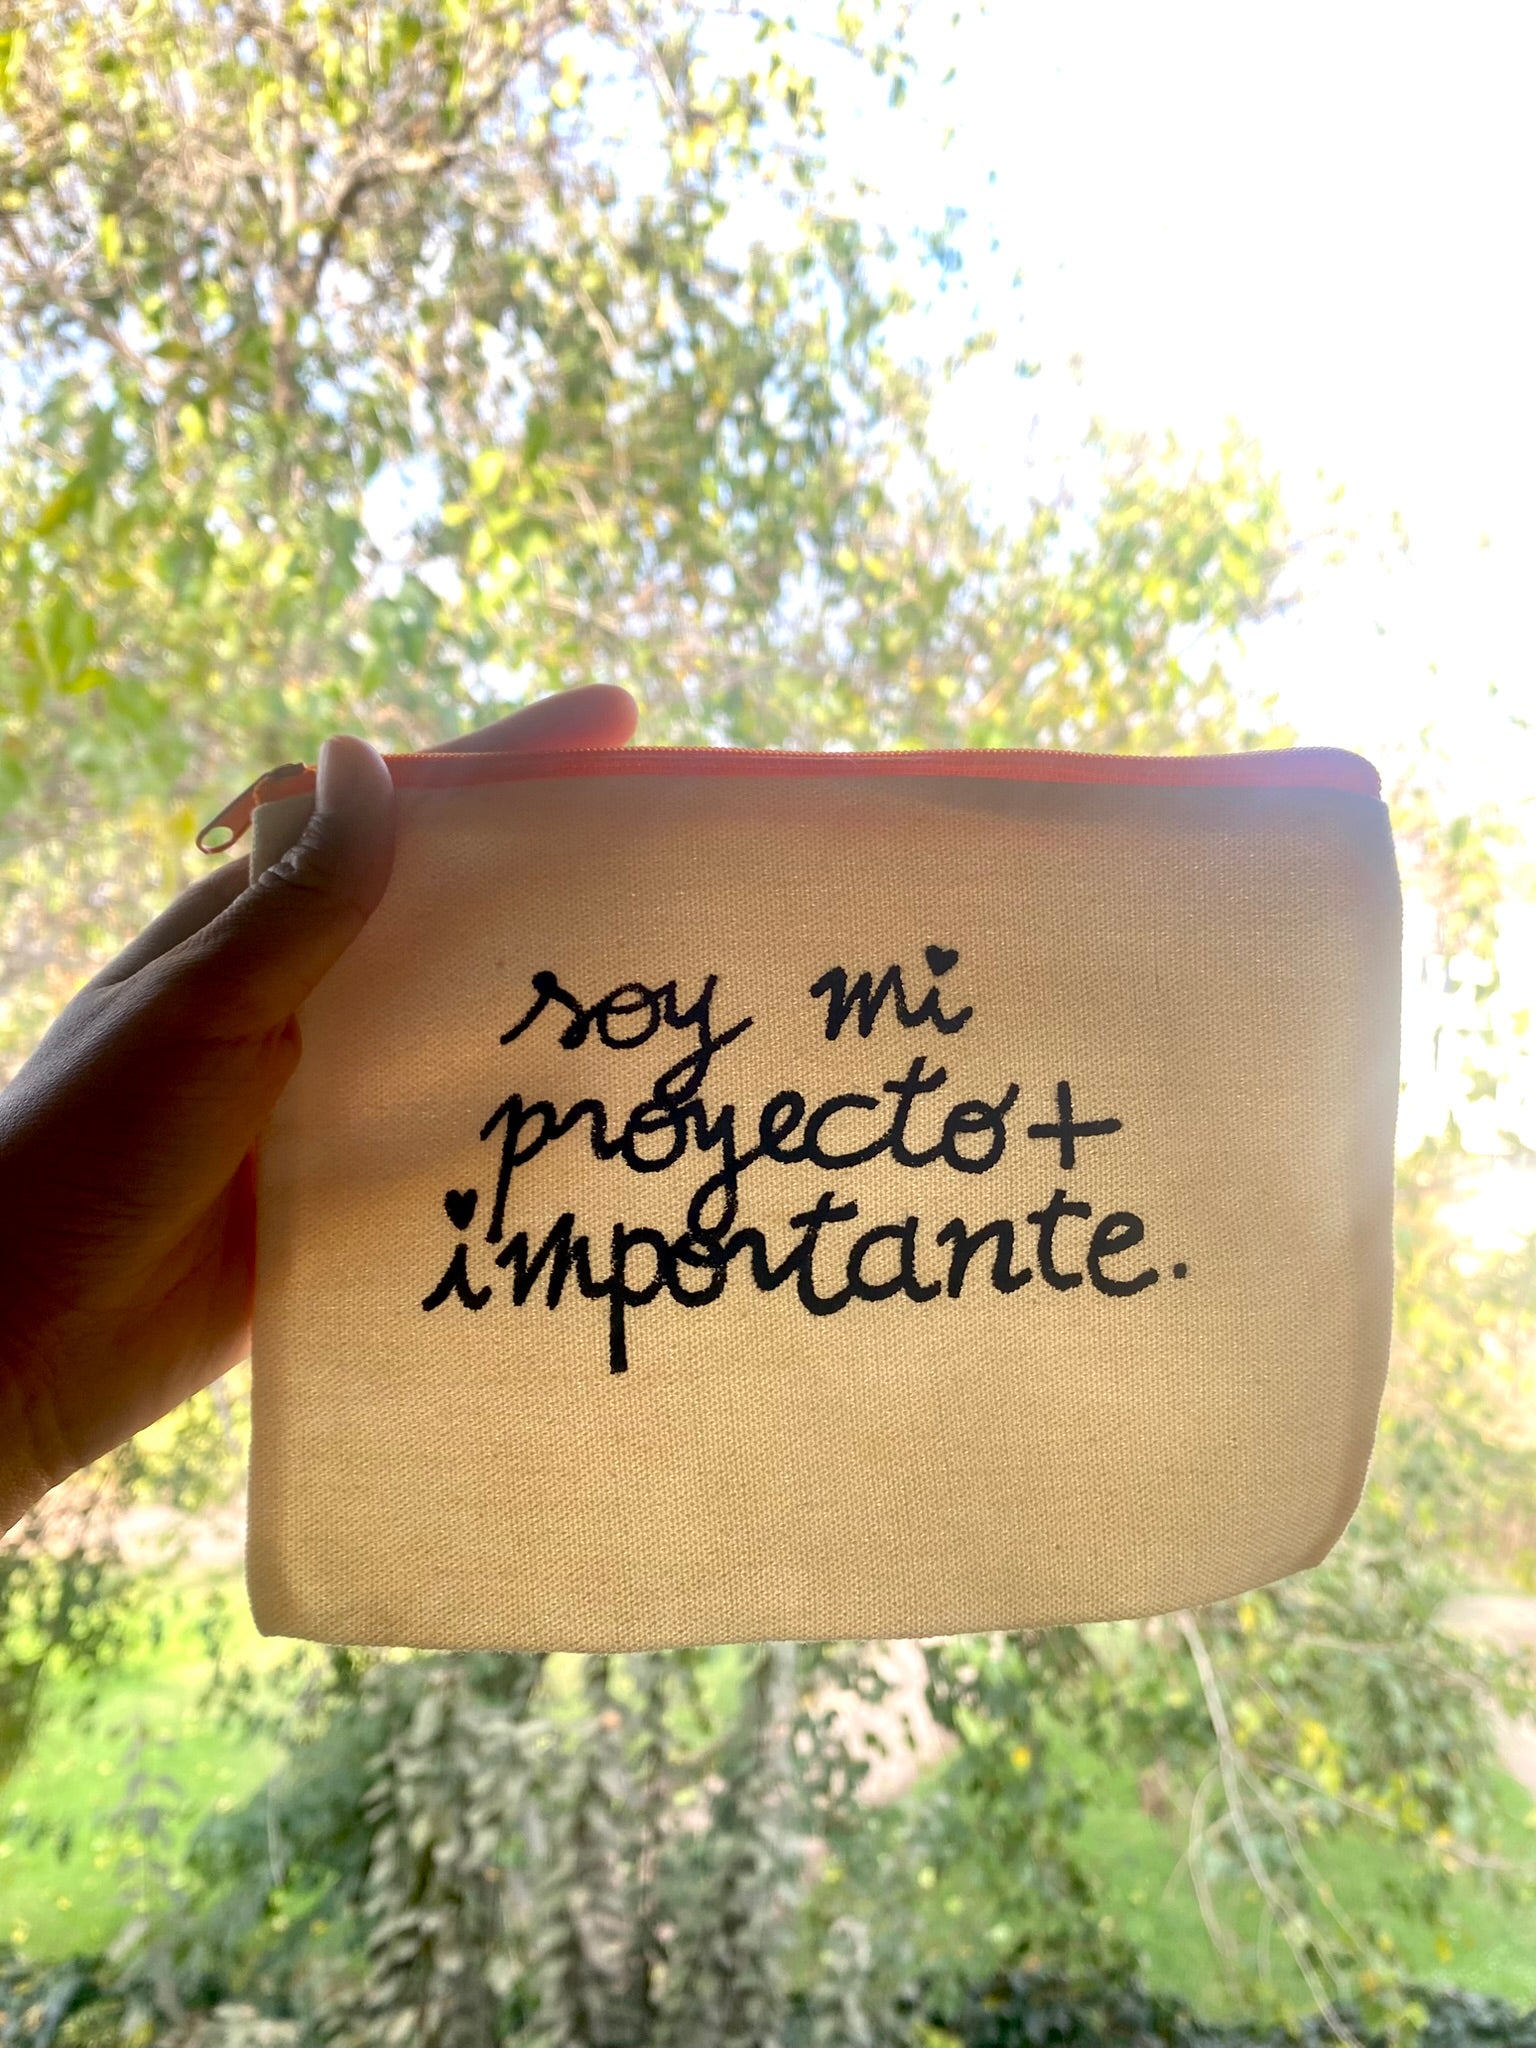 soy mi
proyecto+
importante.